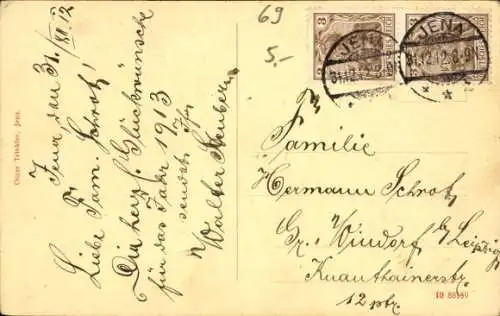 Jena, den 31./XII.12
Liebe Fam. Schrot!
Die herzl. Glückwünsche
für das Jahr 1913
sendet Ihr
Walter
69
5.-
3
3
JENA
31.12.12.8-9N.
JENA
31.12.12.8-9N.
Familie
Hermann Schrot
Gr. Windorf b/Leipzig
Knauthainerstr.
12 ptr.
Oscar Teichler, Jena.
10 88159